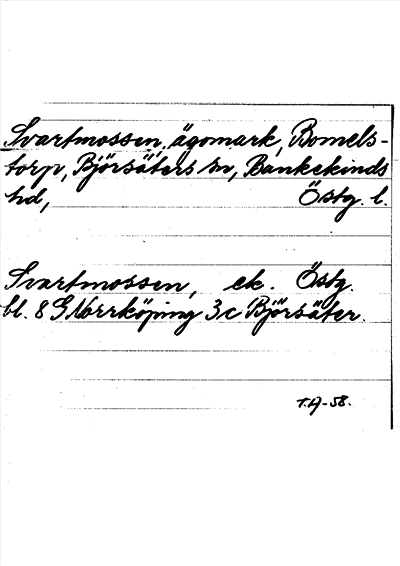 Svartmossen, ägomark, Bomels-
torp, Björsäters sn, Bankekinds
hd, Östg. l.
Svartmossen, ek. Östg.
bl. 8 G Norrköping 3c Björsäter.
T.A-58.